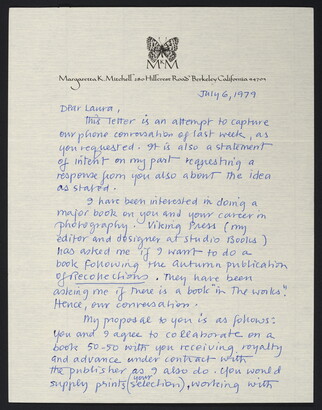 M K M
Margaretta K. Mitchell 280 Hillcrest Road Berkeley California 94705
July 6, 1979
Dear Laura,
This letter is an attempt to capture
our phone conversation of last week, as
you requested. It is also a statement
of intent on my part requesting a
response from you also about the idea
as stated.
I have been interested in doing a
major book on you and your career in
photography. Viking Press (my
editor and designer at Studio Books)
has asked me if I want to do a
book following the Autumn publication
of Recollections. They have been
asking me if there is a book "in the works".
Hence, our conversation.
My proposal to you is as follows:
You and I agree to collaborate on a
book 50-50 with you receiving royalty
and advance under contract with
the publisher as I also do. You would
supply prints (your selection), working with